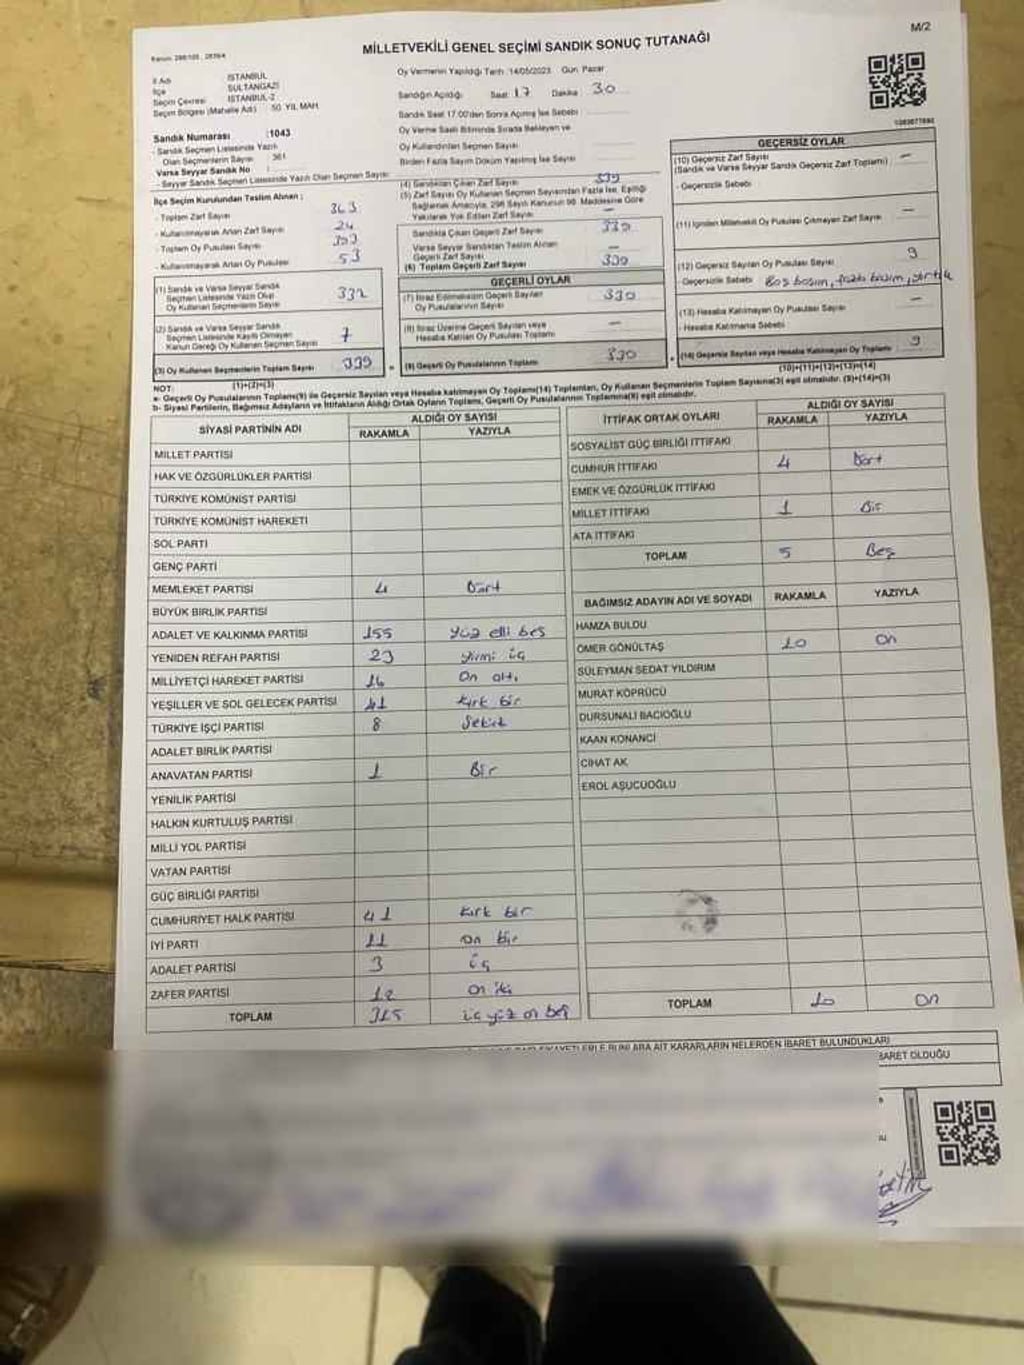 M/2
MİLLETVEKİLİ GENEL SEÇİMİ SANDIK SONUÇ TUTANAĞI
İl Adı İSTANBUL
İlçe SULTANGAZİ
Seçim Çevresi İSTANBUL-2
Seçim Bölgesi (Mahalle Adı) 50. YIL MAH.
Sandık Numarası :1043
- Sandık Seçmen Listesinde Yazılı
Olan Seçmenlerin Sayısı 361
Varsa Seyyar Sandık No :
- Seyyar Sandık Seçmen Listesinde Yazılı Olan Seçmen Sayısı:
Oy Vermenin Yapıldığı Tarih :14/05/2023 Gün: Pazar
Sandığın Açıldığı Saat 17 Dakika 30
Sandık Saat 17:00'den Sonra Açılmış İse Sebebi
Oy Verme Saati Bitiminde Sırada Bekleyen ve
Oy Kullandırılan Seçmen Sayısı
Birden Fazla Sayım Döküm Yapılmış İse Sayısı
İlçe Seçim Kurulundan Teslim Alınan :
- Toplam Zarf Sayısı 363
- Kullanılmayarak Artan Zarf Sayısı 24
- Toplam Oy Pusulası Sayısı 393
- Kullanılmayarak Artan Oy Pusulası 53
(1) Sandık ve Varsa Seyyar Sandık
Seçmen Listesinde Yazılı Olan
Oy Kullanan Seçmenlerin Sayısı 332
(2) Sandık ve Varsa Seyyar Sandık
Seçmen Listesinde Kayıtlı Olmayan
Kanun Gereği Oy Kullanan Seçmen Sayısı 7
(3) Oy Kullanan Seçmenlerin Toplam Sayısı 339
(1)+(2)=(3)
(4) Sandıktan Çıkan Zarf Sayısı 339
(5) Zarf Sayısı Oy Kullanan Seçmen Sayısından Fazla İse, Eşitliği
Sağlamak Amacıyla, 298 Sayılı Kanunun 98. Maddesine Göre
Yakılarak Yok Edilen Zarf Sayısı —
Sandıkta Çıkan Geçerli Zarf Sayısı 339
Varsa Seyyar Sandıktan Teslim Alınan
Geçerli Zarf Sayısı —
(6) Toplam Geçerli Zarf Sayısı 339
GEÇERLİ OYLAR
(7) İtiraz Edilmeksizin Geçerli Sayılan
Oy Pusulalarının Sayısı 330
(8) İtiraz Üzerine Geçerli Sayılan veya
Hesaba Katılan Oy Pusulası Toplamı —
(9) Geçerli Oy Pusulalarının Toplamı 330
GEÇERSİZ OYLAR
(10) Geçersiz Zarf Sayısı —
(Sandık ve Varsa Seyyar Sandık Geçersiz Zarf Toplamı)
- Geçersizlik Sebebi
(11) İçinden Milletvekili Oy Pusulası Çıkmayan Zarf Sayısı —
(12) Geçersiz Sayılan Oy Pusulası Sayısı 9
- Geçersizlik Sebebi Boş basım, fazla basım, yırtık
(13) Hesaba Katılmayan Oy Pusulası Sayısı —
- Hesaba Katılmama Sebebi
(14) Geçersiz Sayılan veya Hesaba Katılmayan Oy Toplamı 9
(10)+(11)+(12)+(13)=(14)
NOT:
a- Geçerli Oy Pusulalarının Toplamı(9) ile Geçersiz Sayılan veya Hesaba katılmayan Oy Toplamı(14) Toplamları, Oy Kullanan Seçmenlerin Toplam Sayısına(3) eşit olmalıdır. (9)+(14)=(3)
b- Siyasi Partilerin, Bağımsız Adayların ve İttifakların Aldığı Ortak Oyların Toplamı, Geçerli Oy Pusulalarının Toplamına(9) eşit olmalıdır.
SİYASİ PARTİNİN ADI ALDIĞI OY SAYISI
RAKAMLA YAZIYLA
MİLLET PARTİSİ
HAK VE ÖZGÜRLÜKLER PARTİSİ
TÜRKİYE KOMÜNİST PARTİSİ
TÜRKİYE KOMÜNİST HAREKETİ
SOL PARTİ
GENÇ PARTİ
MEMLEKET PARTİSİ 4 Dört
BÜYÜK BİRLİK PARTİSİ
ADALET VE KALKINMA PARTİSİ 155 yüz elli beş
YENİDEN REFAH PARTİSİ 23 yirmi üç
MİLLİYETÇİ HAREKET PARTİSİ 16 On altı
YEŞİLLER VE SOL GELECEK PARTİSİ 41 kırk bir
TÜRKİYE İŞÇİ PARTİSİ 8 Sekiz
ADALET BİRLİK PARTİSİ
ANAVATAN PARTİSİ 1 Bir
YENİLİK PARTİSİ
HALKIN KURTULUŞ PARTİSİ
MİLLİ YOL PARTİSİ
VATAN PARTİSİ
GÜÇ BİRLİĞİ PARTİSİ
CUMHURİYET HALK PARTİSİ 41 kırk bir
İYİ PARTİ 11 on bir
ADALET PARTİSİ 3 üç
ZAFER PARTİSİ 12 on iki
TOPLAM 315 üç yüz on beş
İTTİFAK ORTAK OYLARI ALDIĞI OY SAYISI
RAKAMLA YAZIYLA
SOSYALİST GÜÇ BİRLİĞİ İTTİFAKI
CUMHUR İTTİFAKI 4 Dört
EMEK VE ÖZGÜRLÜK İTTİFAKI
MİLLET İTTİFAKI 1 Bir
ATA İTTİFAKI
TOPLAM 5 Beş
BAĞIMSIZ ADAYIN ADI VE SOYADI RAKAMLA YAZIYLA
HAMZA BULDU
ÖMER GÖNÜLTAŞ 10 On
SÜLEYMAN SEDAT YILDIRIM
MURAT KÖPRÜCÜ
DURSUNALİ BACIOĞLU
KAAN KONANCİ
CİHAT AK
EROL AŞUCUOĞLU
TOPLAM 10 On
KARARLARIN NELERDEN İBARET BULUNDUKLARI
BARET OLDUĞU